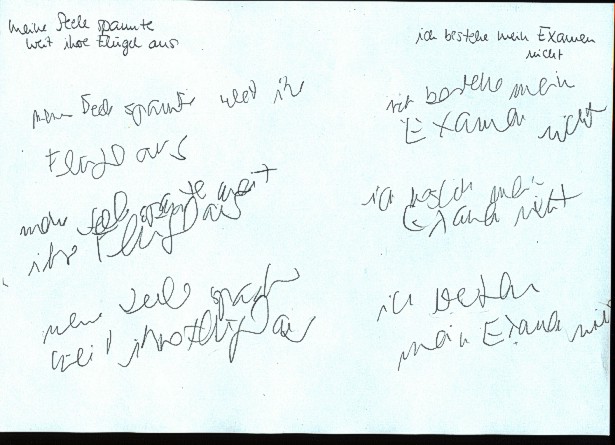 meine Seele spannte
weit ihre Flügel aus
meine Seele spannte weit ihr
Flügel aus
meine Seele spannte weit
ihre Flügel aus
meine Seele
weit ihre Flügel aus
ich bestehe mein Examen
nicht
ich bestehe mein
Examen nicht
ich mein
Examen nicht
ich
mein Examen